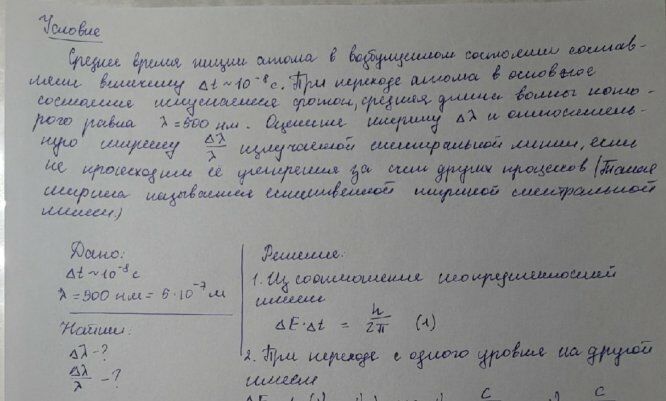 Условие
Среднее время жизни атома в возбужденном состоянии состав-
ляет величину Δt ~ 10⁻⁸ с. При переходе атома в основное
состояние испускается фотон, средняя длина волны кото-
рого равна λ = 500 нм. Оцените ширину Δλ и относитель-
ную ширину Δλ/λ излучаемой спектральной линии, если
не происходит её уширения за счет других процессов (Такая
ширина называется естественной шириной спектральной
линии.)
Дано:
Δt ~ 10⁻⁸ с
λ = 500 нм = 5·10⁻⁷ м
Найти:
Δλ - ?
Δλ/λ - ?
Решение:
1. Из соотношения неопределенностей
имеем
ΔE·Δt = h/2π (1)
2. При переходе с одного уровня на другой
имеем